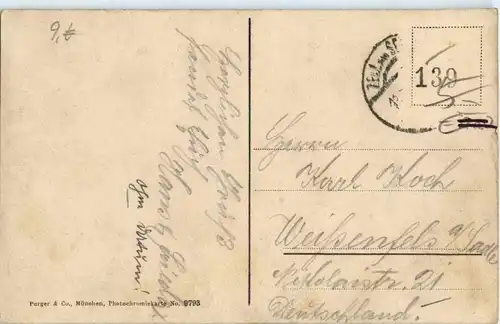 Herzlichen Gruß
sendet Euch
Hans
ohne Datum!
139
Herrn
Karl Koch
Weißenfels a/Saale
Nikolaistr. 21
Deutschland.
Purger & Co., München, Photochromiekarte No. 9795